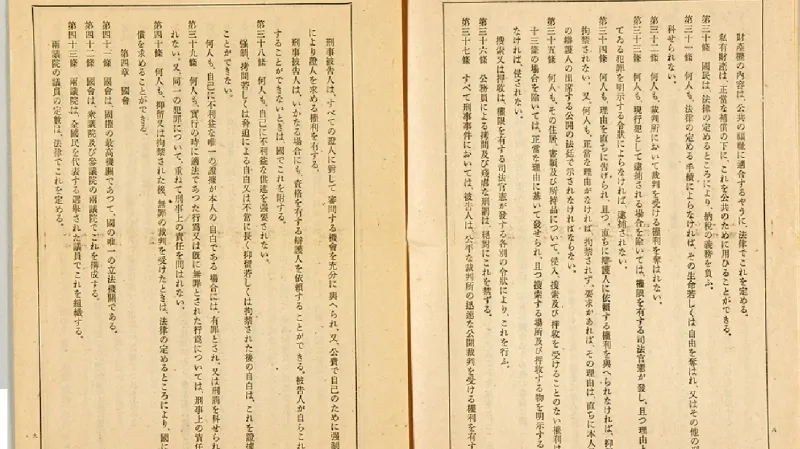 財產權の內容は、公共の福祉に適合するやうに、法律でこれを定める。
私有財產は、正當な補償の下に、これを公共のために用ひることができる。
第三十條　國民は、法律の定めるところにより、納稅の義務を負ふ。
第三十一條　何人も、法律の定める手續によらなければ、その生命若しくは自由を奪はれ、又はその他の刑
科せられない。
第三十二條　何人も、裁判所において裁判を受ける權利を奪はれない。
第三十三條　何人も、現行犯として逮捕される場合を除いては、權限を有する司法官憲が發し、且つ理由と
てゐる犯罪を明示する令狀によらなければ、逮捕されない。
第三十四條　何人も、理由を直ちに告げられ、且つ、直ちに辯護人に依賴する權利を與へられなければ、抑
拘禁されない。又、何人も、正當な理由がなければ、拘禁されず、要求があれば、その理由は、直ちに本人
の辯護人の出席する公開の法廷で示されなければならない。
第三十五條　何人も、その住居、書類及び所持品について、侵入、搜索及び押收を受けることのない權利は
十三條の場合を除いては、正當な理由に基いて發せられ、且つ搜索する場所及び押收する物を明示する
なければ、侵されない。
搜索又は押收は、權限を有する司法官憲が發する各別の令狀により、これを行ふ。
第三十六條　公務員による拷問及び殘虐な刑罰は、絕對にこれを禁ずる。
第三十七條　すべて刑事事件においては、被告人は、公平な裁判所の迅速な公開裁判を受ける權利を有す
八
刑事被告人は、すべての證人に對して審問する機會を充分に與へられ、又、公費で自己のために强制
により證人を求める權利を有する。
刑事被告人は、いかなる場合にも、資格を有する辯護人を依賴することができる。被告人が自らこれ
することができないときは、國でこれを附する。
第三十八條　何人も、自己に不利益な供述を强要されない。
强制、拷問若しくは脅迫による自白又は不當に長く抑留若しくは拘禁された後の自白は、これを證據
ことができない。
何人も、自己に不利益な唯一の證據が本人の自白である場合には、有罪とされ、又は刑罰を科せられ
第三十九條　何人も、實行の時に適法であつた行爲又は旣に無罪とされた行爲については、刑事上の責任
れない。又、同一の犯罪について、重ねて刑事上の責任を問はれない。
第四十條　何人も、抑留又は拘禁された後、無罪の裁判を受けたときは、法律の定めるところにより、國に
償を求めることができる。
第四章　國會
第四十一條　國會は、國權の最高機關であつて、國の唯一の立法機關である。
第四十二條　國會は、衆議院及び參議院の兩議院でこれを構成する。
第四十三條　兩議院は、全國民を代表する選擧された議員でこれを組織する。
兩議院の議員の定數は、法律でこれを定める。
九